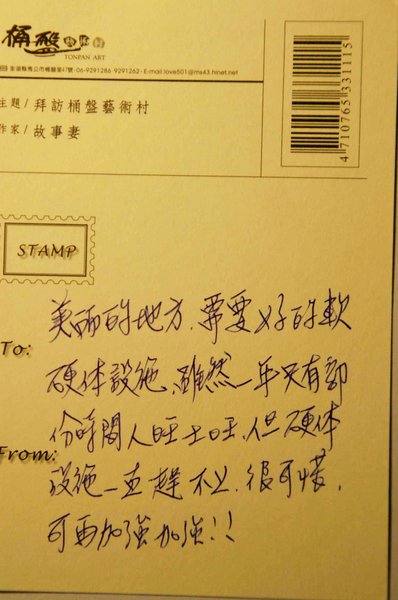 桶盤藝術村
TONPAN ART
澎湖縣馬公市桶盤里47號·06-9291286·9291262·E-mail:love501@ms43.hinet.net
主題/拜訪桶盤藝術村
作家/故事妻
4710765331115
STAMP
To:
From:
美丽的地方,需要好的軟
硬体設施,雖然一年只有部
份時間人旺土旺,但硬体
設施一直趕不上,很可惜,
可再加強加強!!